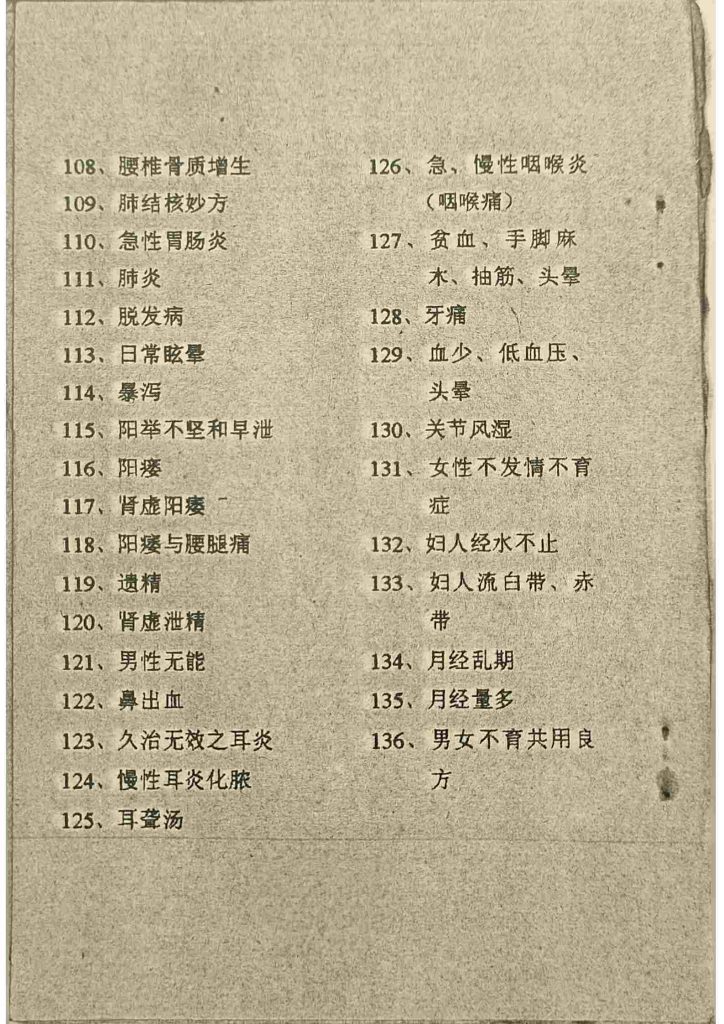 108、腰椎骨质增生
109、肺结核妙方
110、急性胃肠炎
111、肺炎
112、脱发病
113、日常眩晕
114、暴泻
115、阳举不坚和早泄
116、阳痿
117、肾虚阳痿
118、阳痿与腰腿痛
119、遗精
120、肾虚泄精
121、男性无能
122、鼻出血
123、久治无效之耳炎
124、慢性耳炎化脓
125、耳聋汤
126、急、慢性咽喉炎
（咽喉痛）
127、贫血、手脚麻
木、抽筋、头晕
128、牙痛
129、血少、低血压、
头晕
130、关节风湿
131、女性不发情不育
症
132、妇人经水不止
133、妇人流白带、赤
带
134、月经乱期
135、月经量多
136、男女不育共用良
方